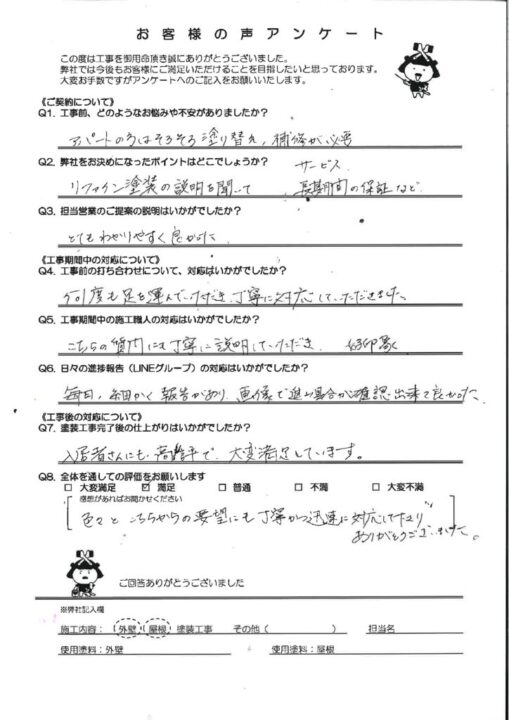 お客様の声アンケート
この度は工事を御用命頂き誠にありがとうございました。
弊社では今後もお客様にご満足いただけることを目指したいと思っております。
大変お手数ですがアンケートへのご記入をお願いいたします。
《ご契約について》
Q1. 工事前、どのようなお悩みや不安がありましたか?
アパートの方はそろそろ塗り替え、補修が必要
Q2. 弊社をお決めになったポイントはどこでしょうか?
サービス
リファイン塗装の説明を聞いて 長期期間の保証など
Q3. 担当営業のご提案の説明はいかがでしたか?
とてもわかりやすく良かった
《工事期間中の対応について》
Q4. 工事前の打ち合わせについて、対応はいかがでしたか?
何度も足を運んでいただき丁寧に対応していただきました
Q5. 工事期間中の施工職人の対応はいかがでしたか?
こちらの質問にも丁寧に説明していただき 好印象
Q6. 日々の進捗報告(LINEグループ)の対応はいかがでしたか?
毎日、細かく報告があり、画像で進み具合が確認出来て良かった
《工事後の対応について》
Q7. 塗装工事完了後の仕上がりはいかがでしたか?
入居者さんにも 高評で、大変満足しています。
Q8. 全体を通しての評価をお願いします
□ 大変満足 ☑ 満足 □ 普通 □ 不満 □ 大変不満
感想があればお聞かせください
色々とこちらからの要望にも丁寧かつ迅速に対応して下さり
ありがとうございました。
ご回答ありがとうございました
※弊社記入欄
施工内容: 外壁 屋根 塗装工事 その他 ( ) 担当名
使用塗料:外壁 使用塗料:屋根